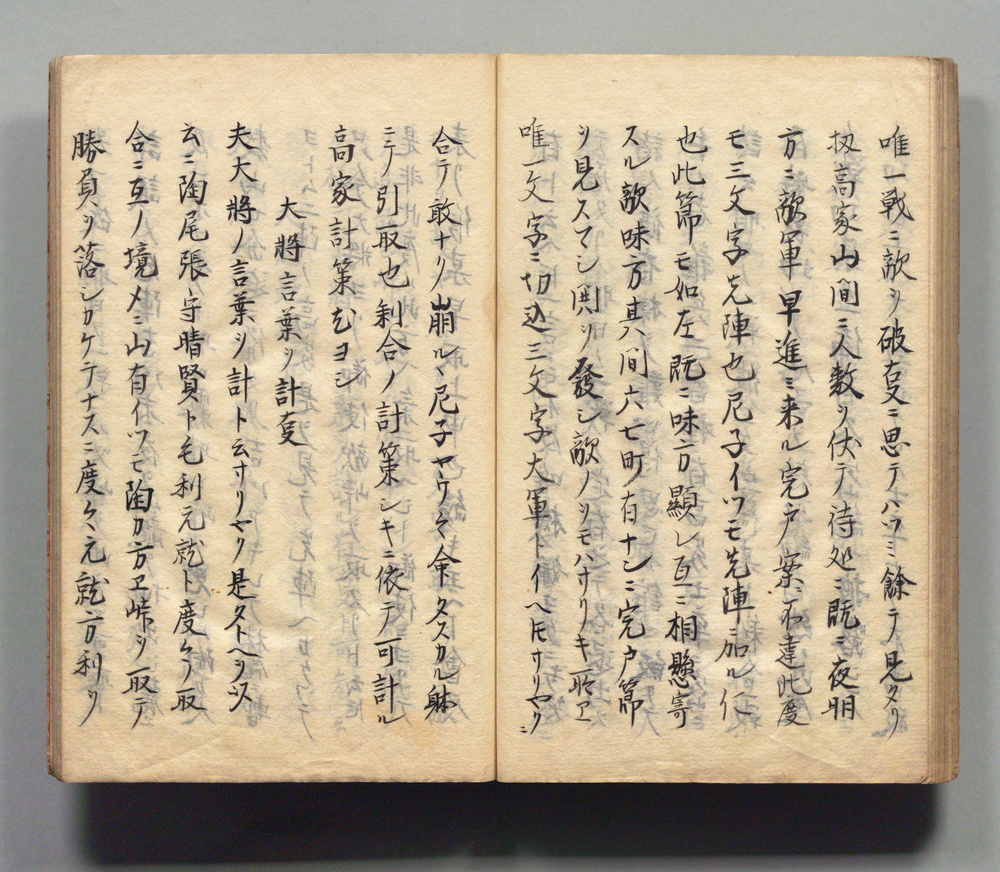 唯一戦ニ敵ヲ破夏ニ思テハツミ餘テ見タリ
扨高家山間ニ人数ヲ伏テ待処ニ既ニ夜明
方ニ敵軍早進ミ来ル完戸案ニ不違此度
モ三文字先陣也尼子イツモ先陣ニ加ル仁
也此節モ如左既ニ味方顕レ互ニ相懸寄
スル敵味方其間六七町有ナシニ完戸節
ヲ見スマシ関ヲ發シ敵ノツモハサリリキ
唯一文字ニ切込三文字大軍ト イヘ𪜈サリヤクニ
合テ敢ナリ崩ル丶尼子ヤウ〱命タスカル躰
ニテ引取也剰合ノ計策シキニ依テ可計ル
高家計策尤ヨシ
大將言葉ヲ計夏
夫大將ノ言葉ヲ計ト云サリヤク是タトヘヲ以
云ニ陶尾張守晴賢ト毛利元就ト度〱取
合ニ互ノ境メニ山有イツモ陶カ方ヱ峠ヲ取テ
勝負ヲ落シカケテナスニ度〱元就方利ヲ